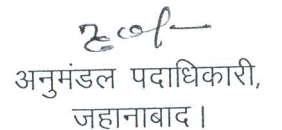 अनुमंडल पदाधिकारी,
जहानाबाद।